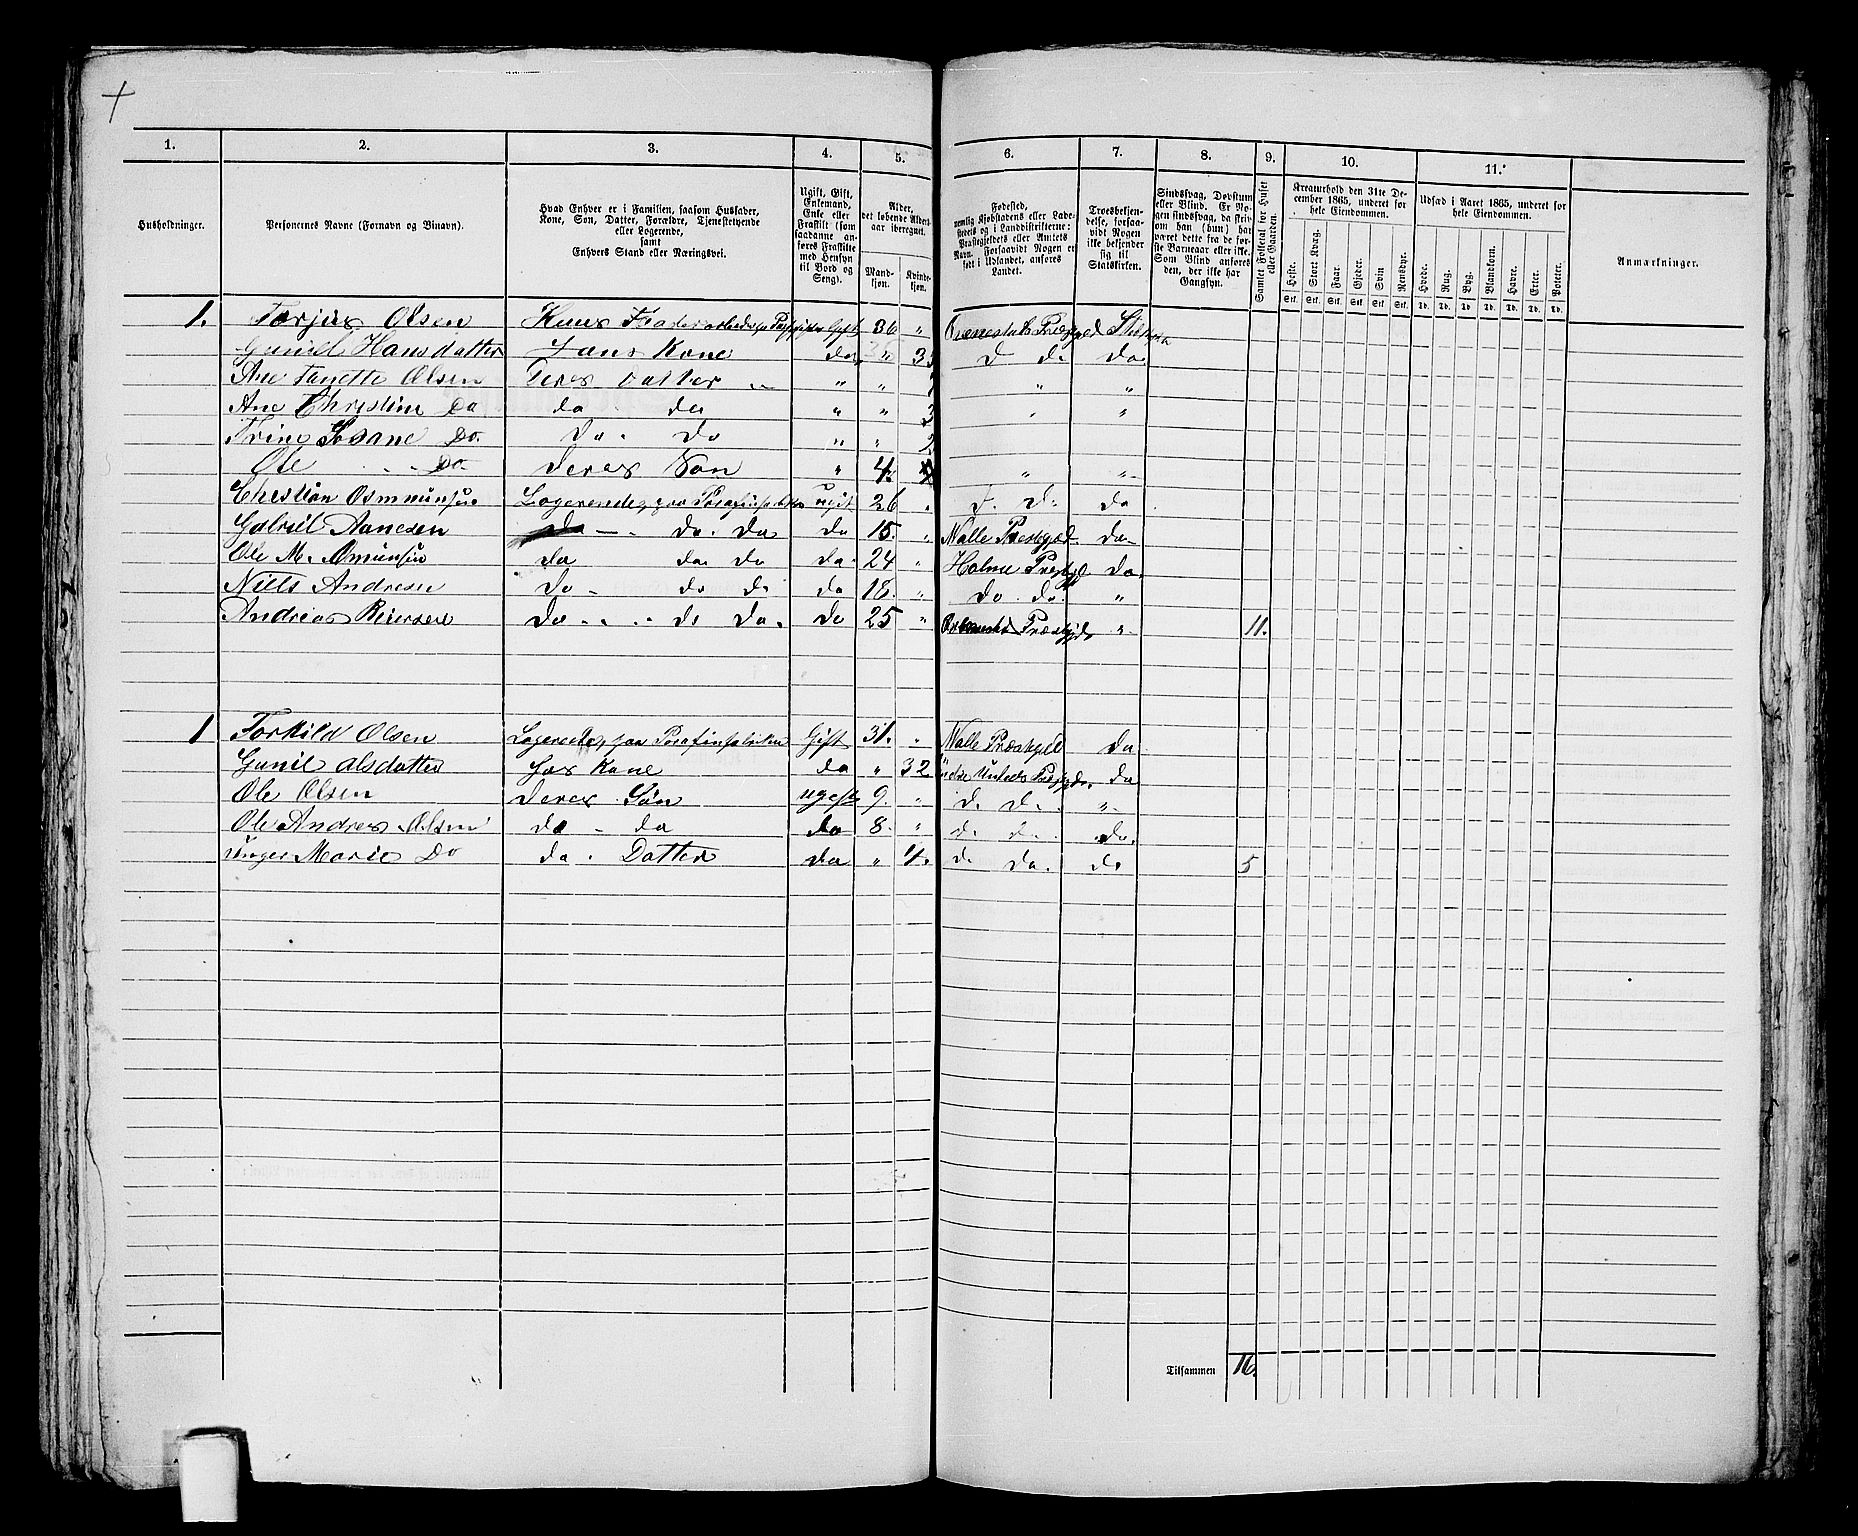 1. 2. 3. 4. 5. 6. 7. 8. 9. 10. 11.
Husholdninger. Personernes Navne (Fornavn og Binavn). Hvad Enhver er i Familien, saasom Husfader, Kone, Søn, Datter, Forældre, Tjenestetyende eller Logerende, samt Enhvers Stand eller Næringsvei. Ugift, Gift, Enkemand, Enke eller Fraskilt (som saadanne anføres Fraskilte med Hensyn til Bord og Seng). Alder, det løbende Alders-aar iberegnet. Mand-kjøn. Kvinde-kjøn.
Fødested, nemlig Kjøbstadens eller Ladestedets og i Landdistrikterne: Præstegjeldets eller Amtets Navn. Forsaavidt Nogen er født i Udlandet, anføres Landet. Troesbekjendelse, forsaavidt Nogen ikke bekjender sig til Statskirken. Sindssvag, Døvstum eller Blind. Er Nogen sindssvag, da skrives om han (hun) har været dette fra de første Barneaar eller ikke. Som Blind anføres den, der ikke har Gangsyn. Samlet Folketal for Huset eller Gaarden. Kreaturhold den 31te December 1865, underet for hele Eiendommen. Udsæd i Aaret 1865, underet for hele Eiendommen. Anmærkninger.
Heste. Stort Kvæg. Faar. Gjeder. Svin. Rensdyr. Hvede. Rug. Byg. Blandkorn. Havre. Erter. Poteter.
Stk. Stk. Stk. Stk. Stk. Stk. Td. Td. Td. Td. Td. Td. Td.
1. Torjus Olsen Huus Fader Gift 36 "
Gunild Hansdatter Hans Kone do " 3
Ane Tanette Olsen Deres Datter " " " "
Ane Christine Do do da " " 3 " "
Trine Do. Do. Do " " 2
Ole Do. Deres Søn " 4. " "
Christian Osmunsen Logerende, paa ugift 26 " d. D. do
Gabriel Aanesen do. da do 15. " Præstgjd do
Ole M. Omunsen da da do da. 24 " Holme Prestgjd do.
Niels Andresen Do do di do 18. " Do. do. "
Andreas Reiersen Do di do. do 25 " Præstgjd " 11.
1 Torkild Olsen Logerende, paa Parafinfabriken Gift 31. " Præstgjd do
Gunil Hans Kone do " 32 Præstgjd. do
Ole Olsen Deres Søn ugift 9. " d. d. "
Ole Andres Olsen do da do 8. " d. d. do.
Inger Marie Do da. Datter da " 4. d. da. do 5
Tilsammen 16.